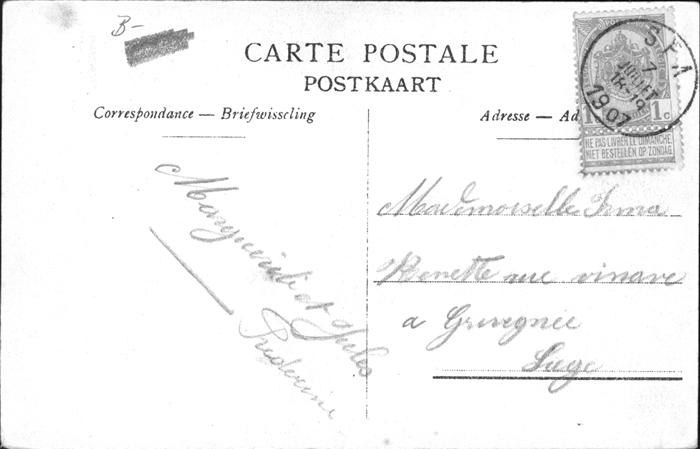 B-
CARTE POSTALE
POSTKAART
Correspondance — Briefwisseling
Adresse — Ad
SPA
7
JUILLET
18-19
1907
1c
NE PAS LIVRER LE DIMANCHE
NIET BESTELLEN OP ZONDAG
Marguerite et Jules
Mademoiselle Irma
rue vinave
a Grivegnée
Liege